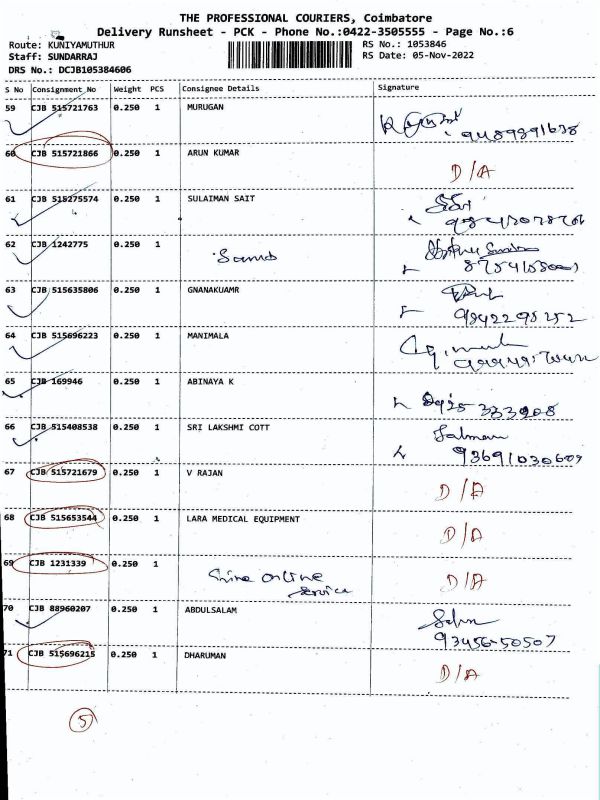 THE PROFESSIONAL COURIERS, Coimbatore
Delivery Runsheet - PCK - Phone No.:0422-3505555 - Page No.:6
Route: KUNIYAMUTHUR RS No.: 1053846
Staff: SUNDARRAJ RS Date: 05-Nov-2022
DRS No.: DCJB105384606
S No Consignment No Weight PCS Consignee Details Signature
59 CJB 515721763 0.250 1 MURUGAN
9489891638
60 CJB 515721866 0.250 1 ARUN KUMAR D/A
61 CJB 515275574 0.250 1 SULAIMAN SAIT
62 CJB 1242775 0.250 1
63 CJB 515635806 0.250 1 GNANAKUAMR
9842298252
64 CJB 515696223 0.250 1 MANIMALA
65 CJB 169946 0.250 1 ABINAYA K
66 CJB 515408538 0.250 1 SRI LAKSHMI COTT Salman
67 CJB 515721679 0.250 1 V RAJAN D/A
68 CJB 515653544 0.250 1 LARA MEDICAL EQUIPMENT D/A
69 CJB 1231339 0.250 1 Shine online D/A
service
70 CJB 88960207 0.250 1 ABDULSALAM
93456-50507
71 CJB 515696215 0.250 1 DHARUMAN D/A
5